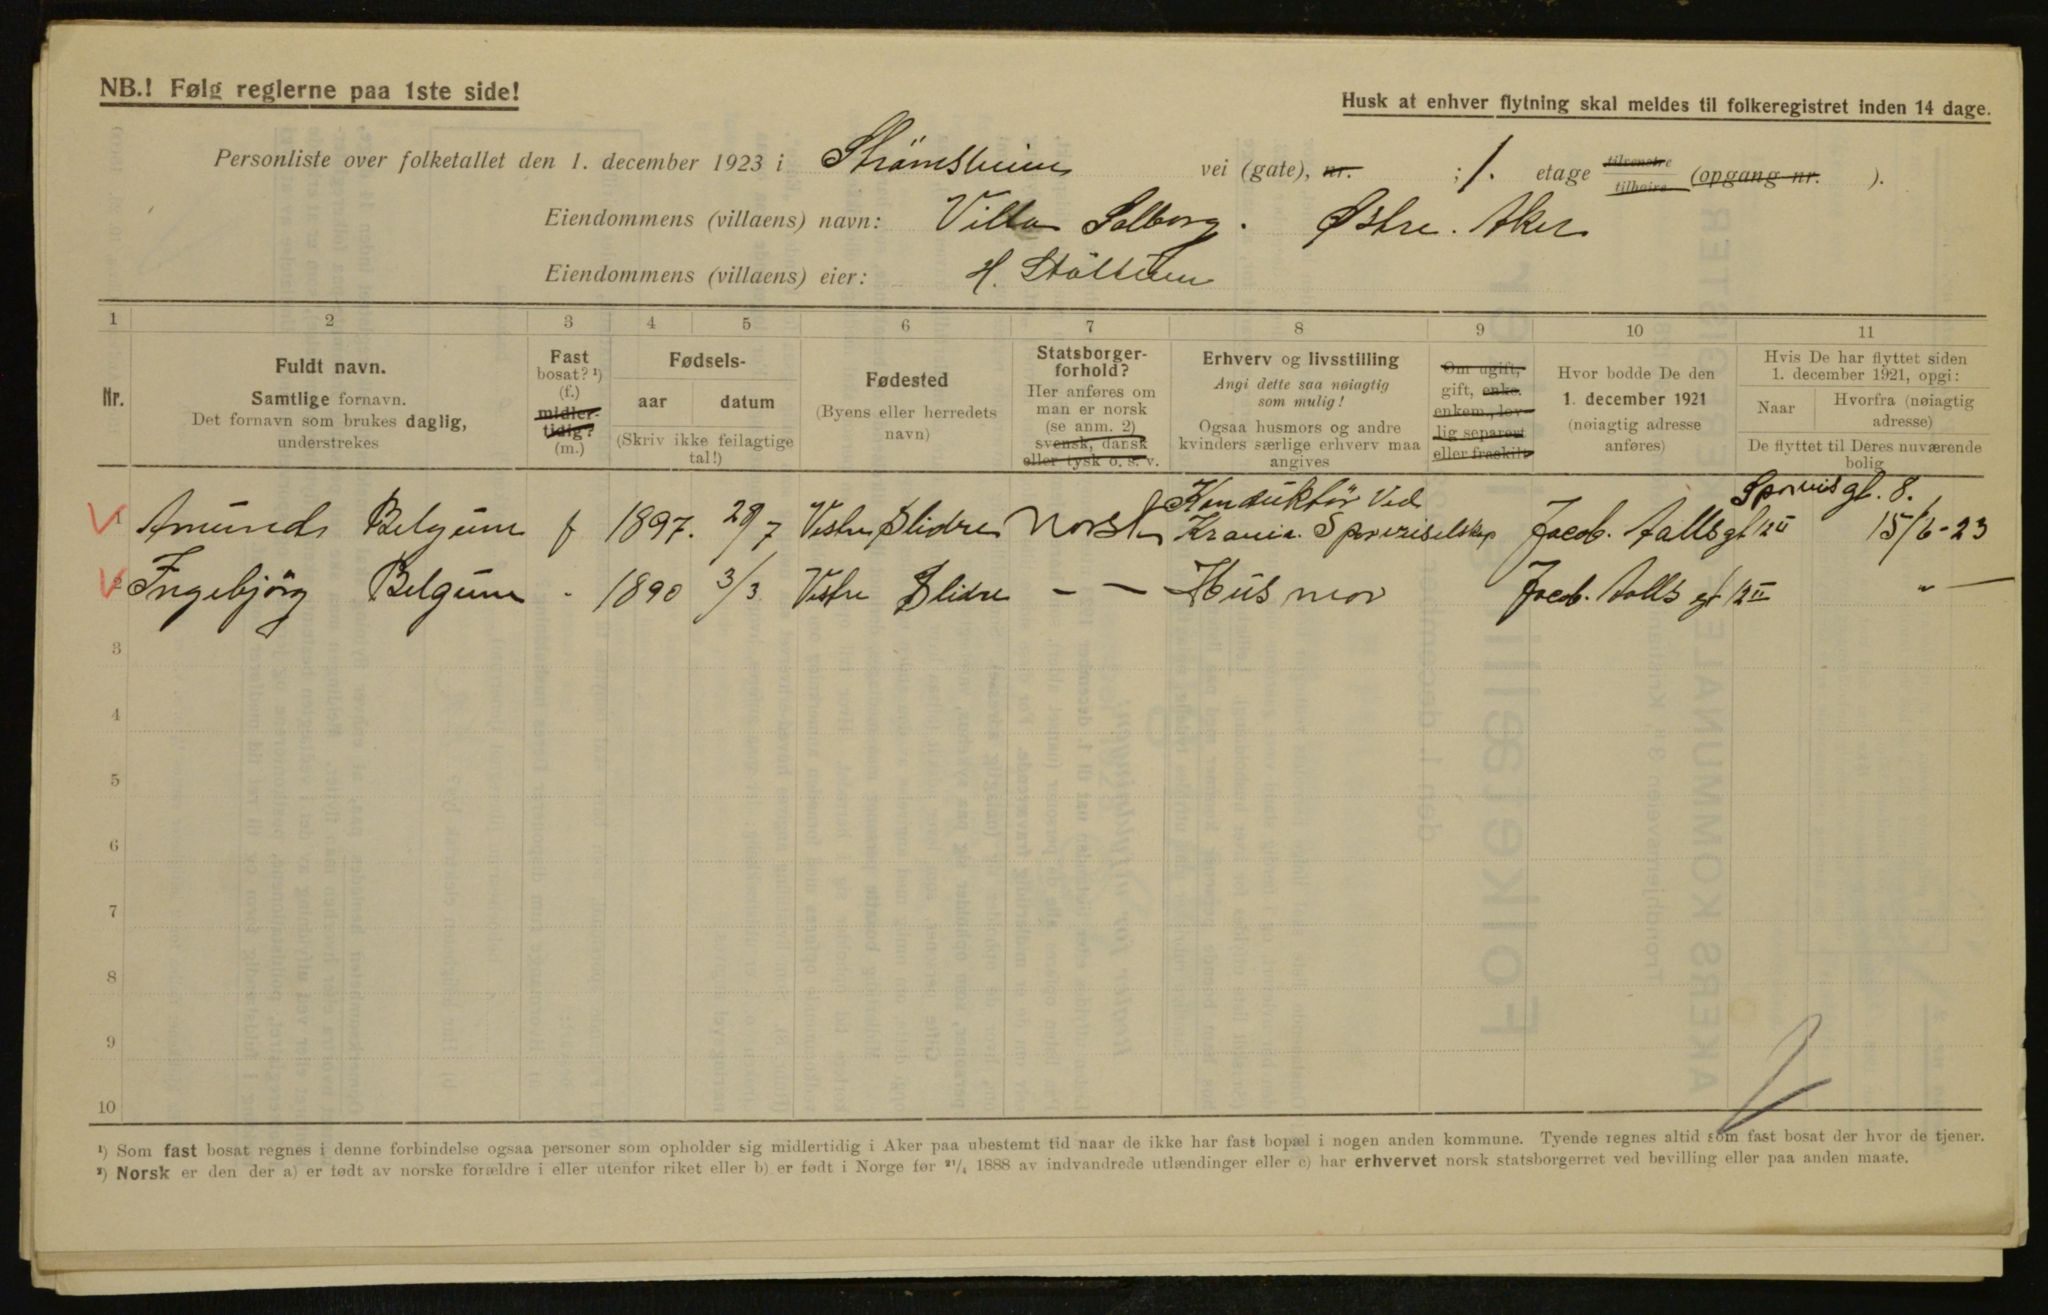 NB.! Følg reglerne paa 1ste side!
Husk at enhver flytning skal meldes til folkeregistret inden 14 dage.
Personliste over folketallet den 1. december 1923 i Strømsheim vei (gate), nr. ; 1. etage tilvenstre tilhøire (opgang nr. ).
Eiendommens (villaens) navn: Villa Solborg. Østre. Aker
Eiendommens (villaens) eier: H.
1 2 3 4 5 6 7 8 9 10 11
Nr.
Fuldt navn.
Samtlige fornavn.
Det fornavn som brukes daglig,
understrekes
Fast
bosat? ¹)
(f.)
midler-
tidig?
(m.)
Fødsels-
aar datum
(Skriv ikke feilagtige
tal!)
Fødested
(Byens eller herredets
navn)
Statsborger-
forhold?
Her anføres om
man er norsk
(se anm. 2)
svensk, dansk
eller tysk o. s. v.
Erhverv og livsstilling
Angi dette saa nøiagtig
som mulig!
Ogsaa husmors og andre
kvinders særlige erhverv maa
angives
Om ugift,
gift, enke.
enkem., lov-
lig separert
eller fraskilt
Hvor bodde De den
1. december 1921
(nøiagtig adresse
anføres)
Hvis De har flyttet siden
1. december 1921, opgi:
Naar
Hvorfra (nøiagtig
adresse)
De flyttet til Deres nuværende
bolig
1 Amund Belgum f 1897. 29/7 Vestre Slidre Norsk Konduktör Ved Krania. Sporveiselskap Jacob. Aallsgt 12 II Sporveisgt. 8. 15/6-23
2 Ingebjörg Belgum - 1890 3/3 Vestre Slidre - - Husmor Jacob. Aalls gt 12 II " -
3
4
5
6
7
8
9
10
¹) Som fast bosat regnes i denne forbindelse ogsaa personer som opholder sig midlertidig i Aker paa ubestemt tid naar de ikke har fast bopæl i nogen anden kommune. Tyende regnes altid som fast bosat der hvor de tjener.
²) Norsk er den der a) er født av norske forældre i eller utenfor riket eller b) er født i Norge før ²¹/₄ 1888 av indvandrede utlændinger eller c) har erhvervet norsk statsborgerret ved bevilling eller paa anden maate.